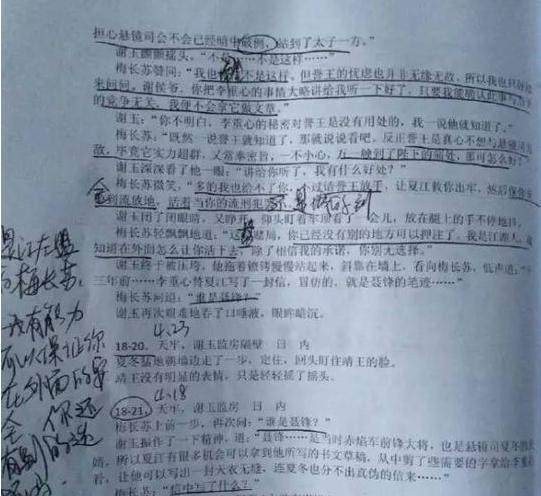 担心悬镜司会不会已经暗中破例，站到了太子一方。”
谢玉颤颤摇头，“不是……不是这样……”
梅长苏赞同：“我也 不是这样。但誉王的忧虑也并非无缘无故，所以我也只好
来问问。谢侯爷，你把李重心的事情大略讲给我听一下好了，只要我能确认此事与
的竞争无关，我便不会拿它做文章。”
谢玉：“你不明白，李重心的秘密对誉王是没有用处的，我一说他就知道了。”
梅长苏：“既然一说誉王就知道了，那就说说看吧。反正誉王是真心不想与悬镜司
敌，毕竟它实力超群，又常奉密旨，一不小心，万一触到了陛下的痛处，那可怎么好？”
谢玉深深看了他一眼：“讲给你听了，我有什么好处？”
梅长苏微笑，“多的我也给不了你，不过请誉王放手，让夏江救你出牢，然后
到流放地，活着当你的流刑犯
谢玉闭了闭眼睛，又睁开，仰头盯着牢顶看 会儿，放在腿上的手不停地抖。
梅长苏轻飘飘地道：“这 赌局，你已经没有别的地方可以押注了。我是江湖人，
知道在外面怎么让你活下去，除了相信我的承诺，你别无选择。”
谢玉终于被压垮，他拖着镣铐慢慢站起来，斜靠在墙上，看向梅长苏，低声道：
三年前……李重心替夏江写了一封信，冒仿的，就是聂锋的笔迹……”
梅长苏问道：“谁是聂锋？”
谢玉再次艰难地吞了口唾液，眼眸暗沉。
4.23
18-20. 天牢，谢玉监房隔壁 日 内
夏冬猛地朝墙边走了一步，定住，回头盯住靖王的脸。
靖王没有明显的表情，只是轻轻摇了摇头。
4.18
18-21. 天牢，谢玉监房 日 内
梅长苏上前一步，再次问：“谁是聂锋？”
谢玉振作了一下精神，道：“聂锋……是当时赤焰军前锋大将，也是悬镜司夏冬的
婿，所以夏江有很多机会可以拿到他所写的书文草稿，从中剪了些需要的字拿给李重
看，让他可以写出一封天衣无缝、连夏冬也分不出真伪的信来……”
梅长苏：“信中写了什么？”
是江左盟
的梅长苏，
我有能力
可以保证你
在外面的安
全 你还
有别的选